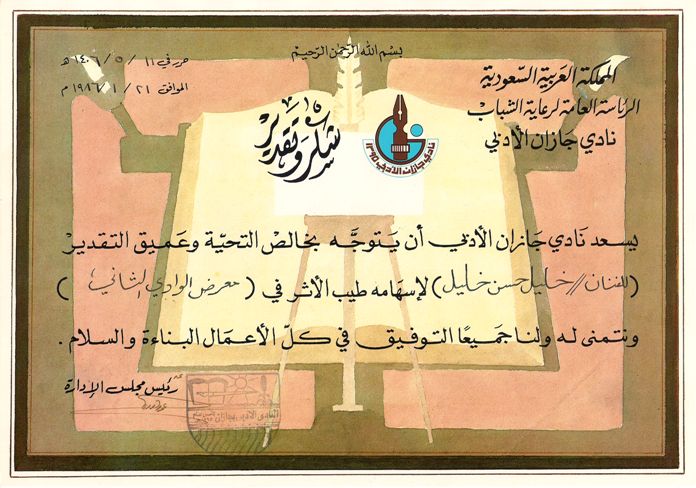 بسم الله الرحمن الرحيم
المملكة العربية السعودية
الرئاسة العامة لرعاية الشباب
نادي جازان الأدبي
حرر في ١١ / ٥ / ١٤٠٦ هـ
الموافق ٢١ / ١ / ١٩٨٦ م
شكر وتقدير
نادي جازان الأدبي ١٣٩٥
يسعد نادي جازان الأدبي أن يتوجَّه بخالص التحيّة وعميق التقدير
(للفنان // خليل حسن خليل) لإسهامه طيب الأثر في (معرض الوادي الثاني)
ونتمنى له ولنا جميعًا التوفيق في كلّ الأعمال البناءة والسلام .
رئيس مجلس الإدارة
النادي الأدبي بجازان